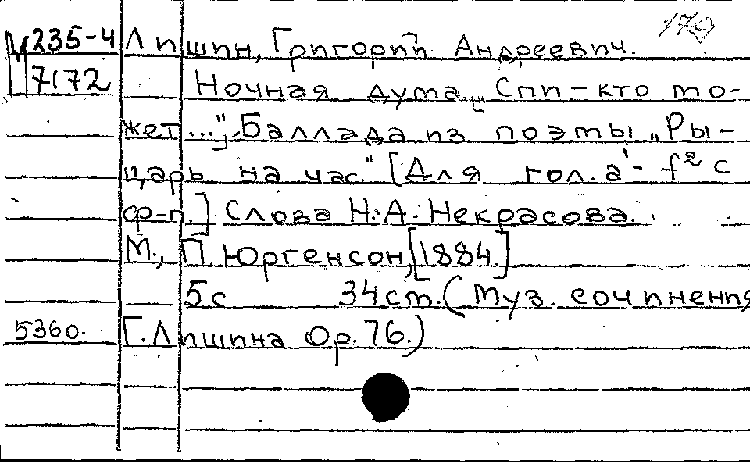 М 235-4 Лишин, Григорий Андреевич.
7172 Ночная дума „Спи - кто мо-
жет ...". Баллада из поэмы „Ры-
царь на час" [Для гол. a¹ - f² с
ф-п.] Слова Н.А. Некрасова.
М., П. Юргенсон, [1884.]
5с 34 cm. (Муз. сочинения
5360. Г. Лишина Op. 76.)